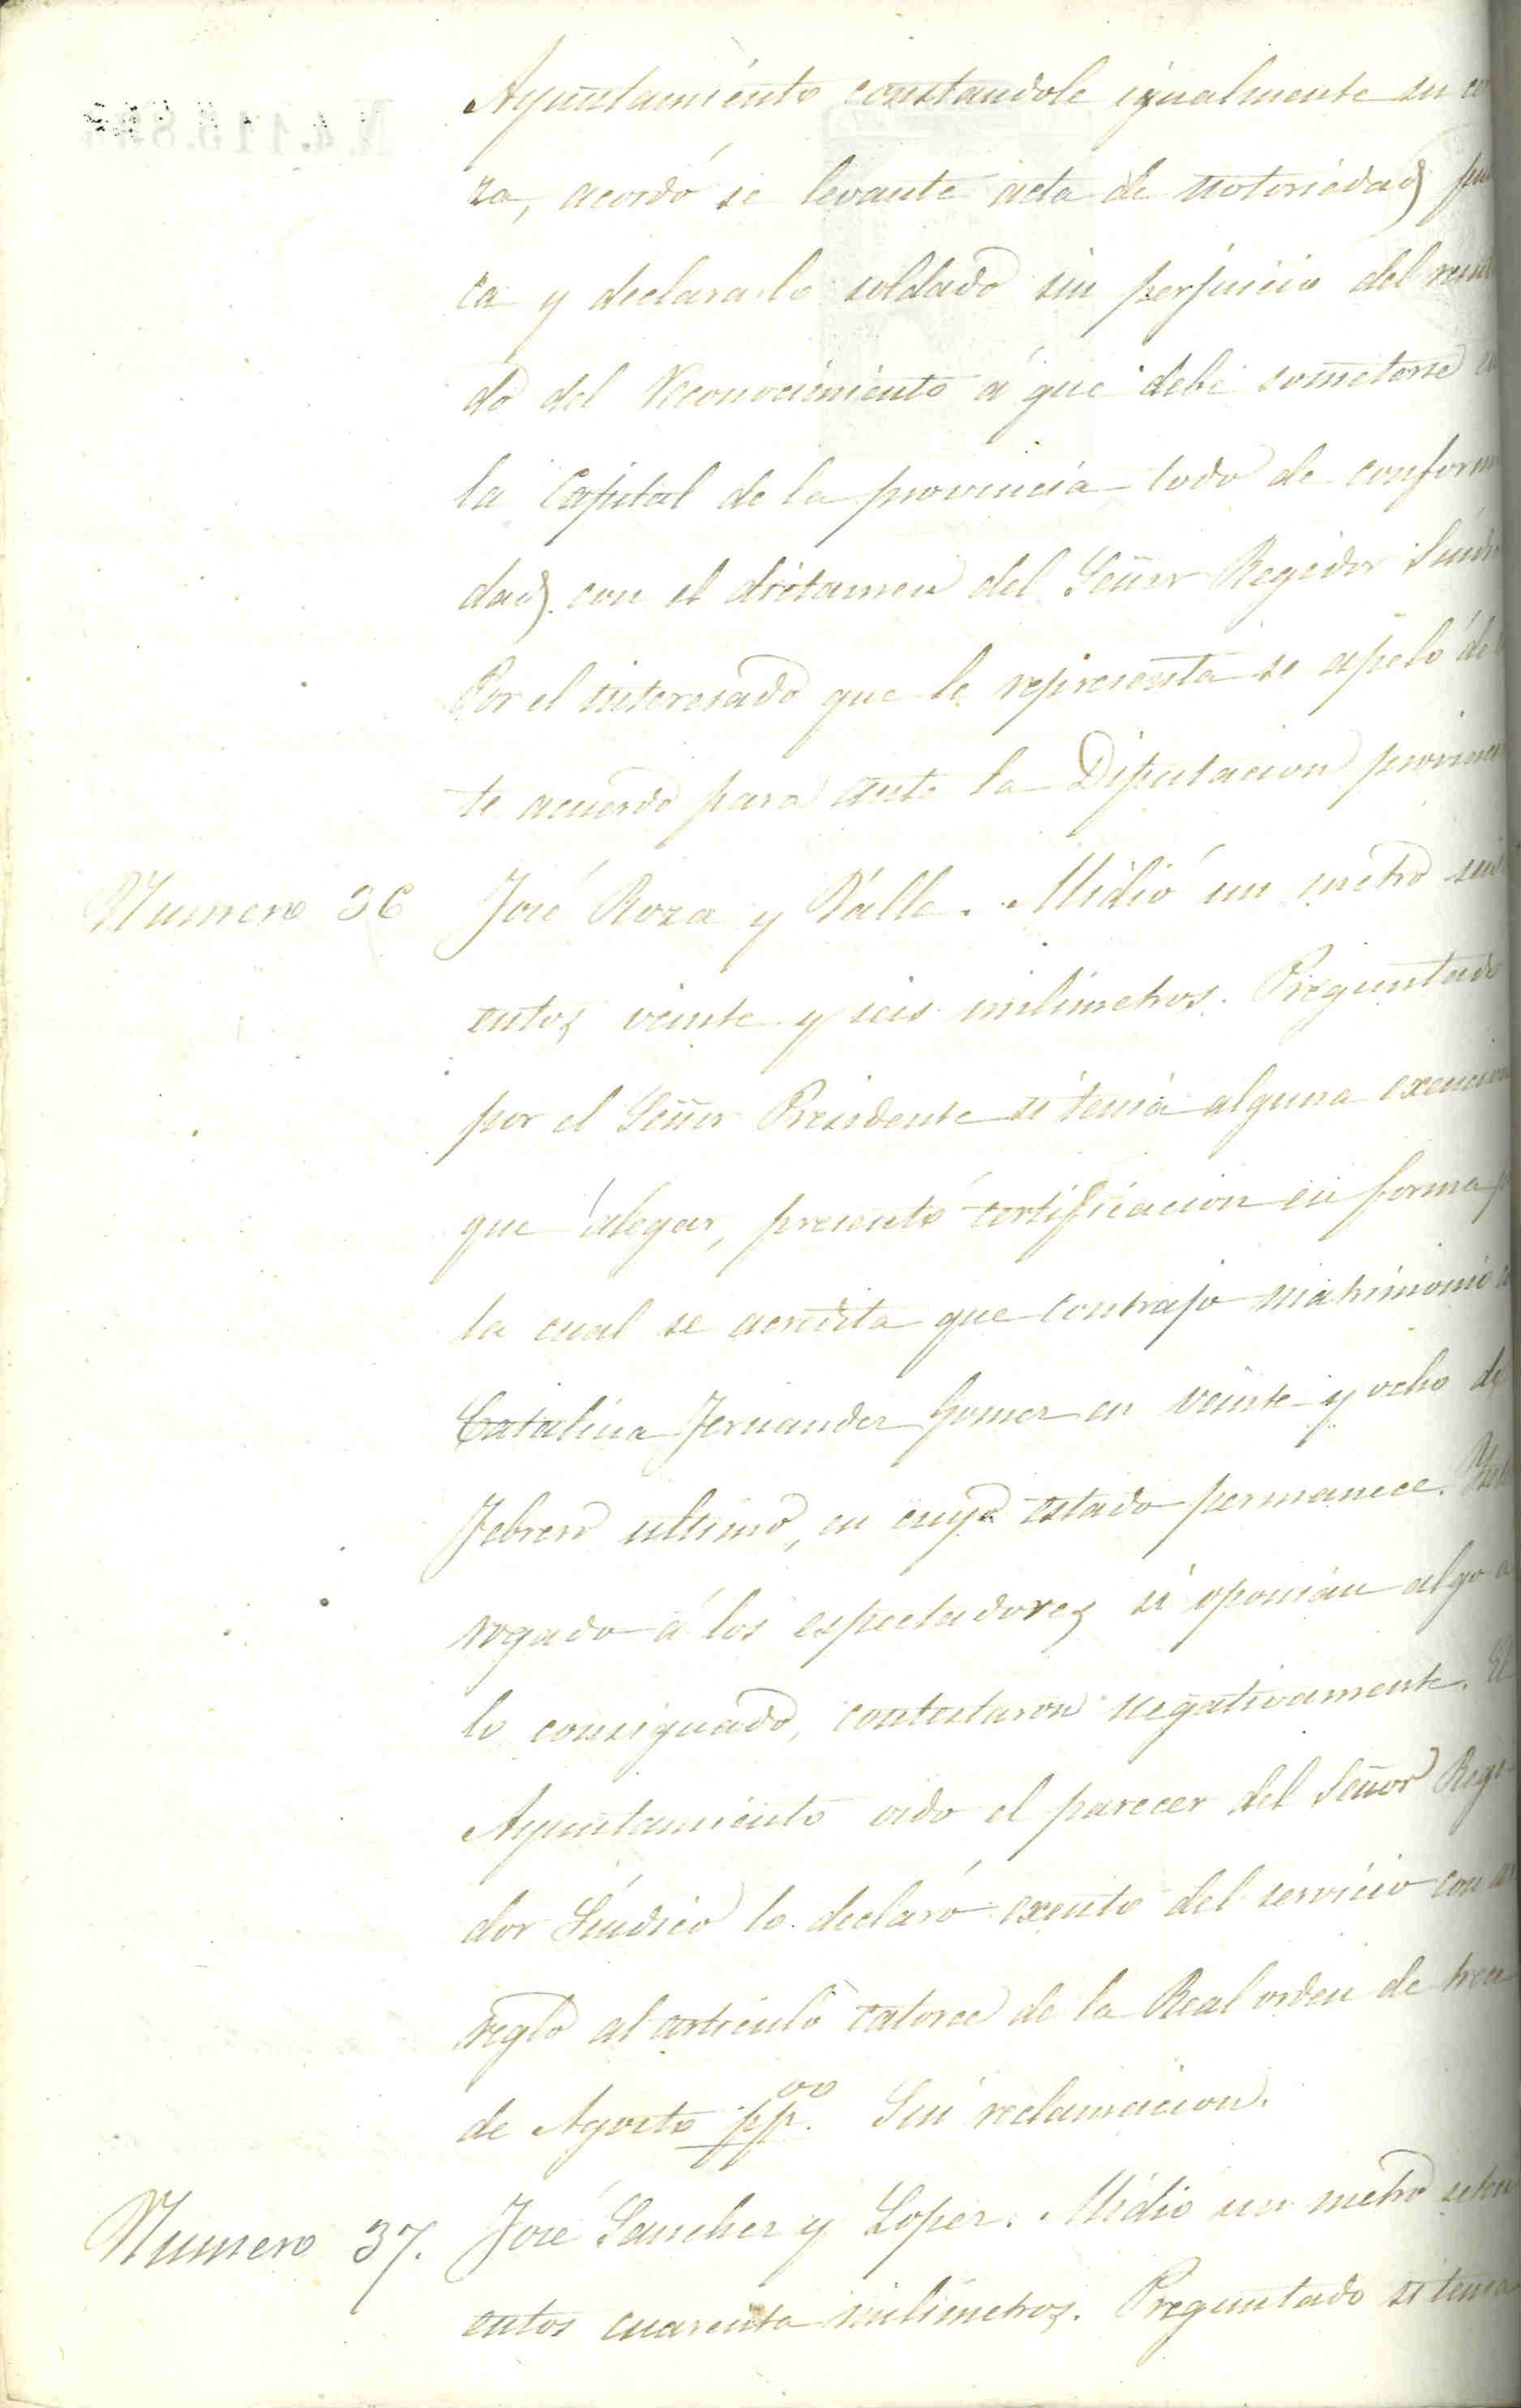 Ayuntamiento constandole igualmente su
za, acordó se levante acta de notoriedad
ca y declararlo soldado sin perjuicio del
do del Reconocimiento á que debe someterse
la Capital de la provincia todo de conform
dad con el dictamen del Señor Regidor Sindi
Por el interesado que le representa se apeló de
te acuerdo para ante la Diputacion provinc
Numero 36 José Roza y Valle. Midió un metro seis
entos veinte y seis milimetros. Preguntado
por el Señor Presidente si tenia alguna exencion
que alegar, presentó certificacion en forma p
la cual se acredita que contrajo matrimonio
Catalina Fernandez Gomez en veinte y ocho de
Febrero ultimo, en cuyo estado permanece.
rogado á los espectadores si oponian algo a
lo consignado, contestaron negativamente. El
Ayuntamiento oido el parecer del Señor Regi-
dor Sindico lo declaró exento del servicio con ar
reglo al articulo catorce de la Real orden de trece
de Agosto pp.ºº Sin reclamacion.
Numero 37. José Sanchez y Lopez. Midio un metro seteci
entos cuarenta milimetros. Preguntado si tenia